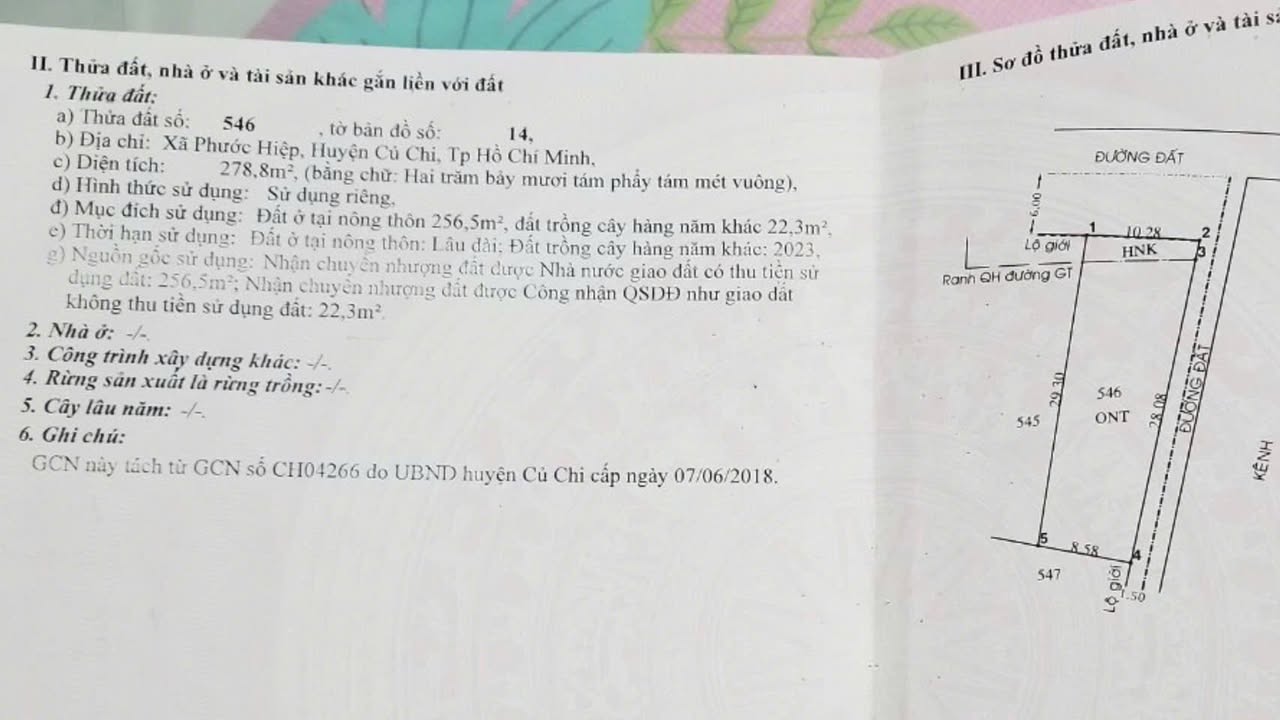 II. Thửa đất, nhà ở và tài sản khác gắn liền với đất
1. Thửa đất:
a) Thửa đất số: 546 , tờ bản đồ số: 14,
b) Địa chỉ: Xã Phước Hiệp, Huyện Củ Chi, Tp Hồ Chí Minh,
c) Diện tích: 278,8m², (bằng chữ: Hai trăm bảy mươi tám phẩy tám mét vuông),
d) Hình thức sử dụng: Sử dụng riêng,
đ) Mục đích sử dụng: Đất ở tại nông thôn 256,5m², đất trồng cây hàng năm khác 22,3m²,
e) Thời hạn sử dụng: Đất ở tại nông thôn: Lâu dài: Đất trồng cây hàng năm khác: 2023,
g) Nguồn gốc sử dụng: Nhận chuyển nhượng đất được Nhà nước giao đất có thu tiền sử
dụng đất: 256,5m²; Nhận chuyển nhượng đất được Công nhận QSDĐ như giao đất
không thu tiền sử dụng đất: 22,3m².
2. Nhà ở: -/-.
3. Công trình xây dựng khác: -/-.
4. Rừng sản xuất là rừng trồng: -/-.
5. Cây lâu năm: -/-.
6. Ghi chú:
GCN này tách từ GCN số CH04266 do UBND huyện Củ Chi cấp ngày 07/06/2018.
III. Sơ đồ thửa đất, nhà ở và tài
ĐƯỜNG ĐẤT
6.00
1
10.28
2
Lộ giới
HNK
3
Ranh QH đường GT
29.30
546
ONT
28.08
ĐƯỜNG ĐẤT
545
KÊNH
5
8.58
4
547
Lộ giới
1.50